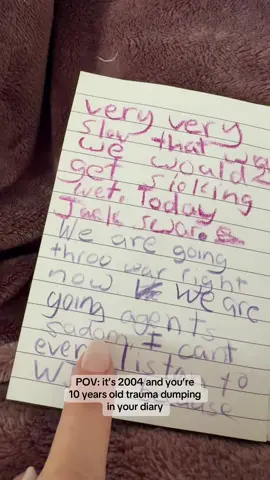 very very
slow that we
we would
get sioking
wet. Today
Jack sware
We are going
throo war right
now we are
going agents
sadom I cant
even listen to
POV: it's 2004 and you're
10 years old trauma dumping
in your diary